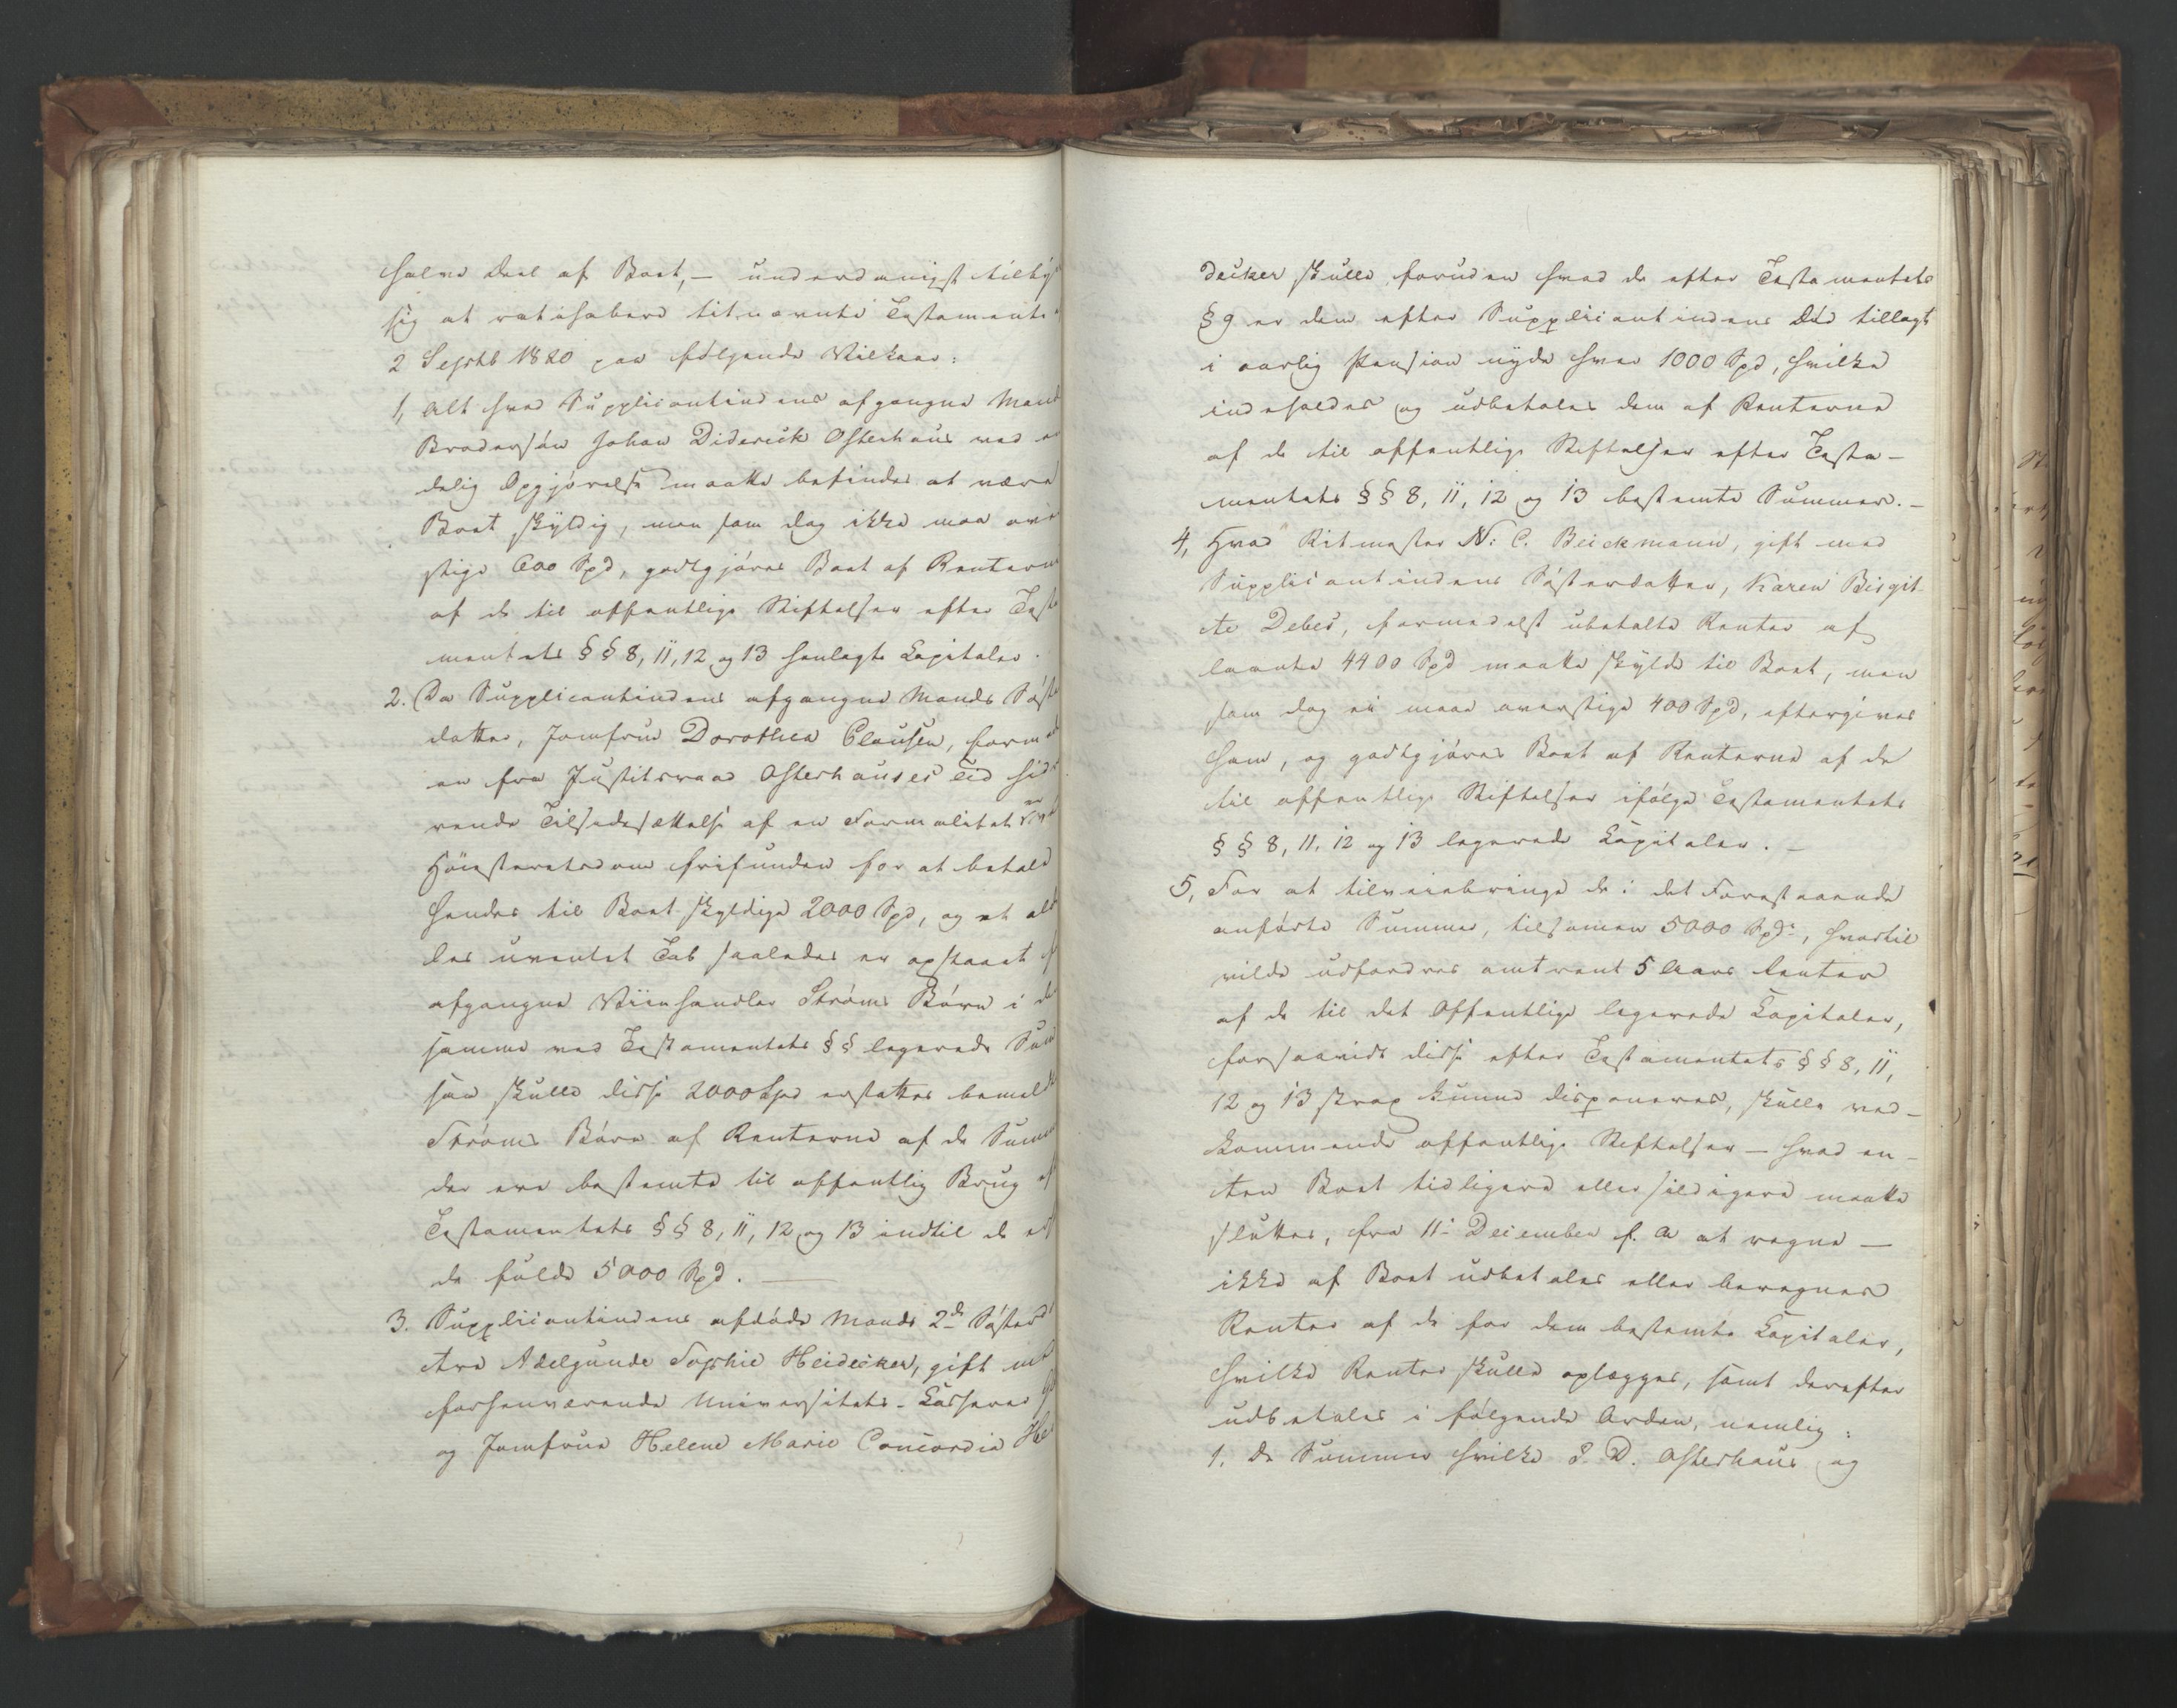 halve Deel af Boet, — underdanigst tilby
sig at ratihabere titnævnte Testamente
2 Septbr 1820 paa følgende Vilkaar:
1, Alt hvad Supplicantindens afgangne Mand
Brodersøn Johan Diderick Osterhaus ved
delig Opgjørelse maatte befindes at være
Boet skyldig, men som dog ikke maa ove
stige 600 Spd, godtgjøres Boet af Renterne
af de til offentlige Stiftelser efter Testa
mentets §§ 8, 11, 12 og 13 henlagte Capitaler.
2. Da Supplicantindens afgangne Mands Søste
datter, Jomfrue Dorothea Clausen, formed
en fra Justitsraad Osterhauses Tid hid
rende Tilsidesættelse af en Formalitet ved
Høiesteretsdom frifunden for at betale
hendes til Boet skyldige 2000 Spd, og et al
les uventet Tab saaledes er opstaaet
afgangne Viinhandler Strøms Børn i de
samme ved Testamentets §§ legerede Sum
saa skulle disse 2000 Spd erstattes bemeldte
Strøms Børn af Renterne af de Summer
der ere bestemte til offentlig Brug ef
Testamentets §§ 8, 11, 12 og 13 indtil de
de fulde 5000 Spd. —
3. Supplicantindens afdøde Mands 2de Søsterd
tre Adelgunde Sophie Heidecker, gift med
forhenværende Universitets-Casserer
og Jomfrue Helene Marie Concordia Hei
decker skulle, foruden hvad de efter Testamentets
§ 9 er dem efter Supplicantindens Død tillagt
i aarlig Pension nyde hver 1000 Spd, hvilke
indeholdes og udbetales dem af Renterne
af de til offentlige Stiftelser efter Testa-
mentets §§ 8, 11, 12 og 13 bestemte Summer. —
4, Hvad Ritmester N: C. Beickmann, gift med
Supplicantindens Søsterdatter, Karen Birgit
te Debes, formedelst ubetalte Renter af
laante 4400 Spd maatte skylde til Boet, men
som dog ei maae overstige 400 Spd, eftergives
ham, og godtgjøres Boet af Renterne af de
til offentlige Stiftelser ifølge Testamentets
§§ 8, 11, 12 og 13 legerede Capitaler. —
5, For at tilveiebringe de i det Forestaaende
anførte Summer, tilsamen 5000 Spdr, hvortil
vilde udfordres omtrent 5 Aars Renter
af de til det Offentlige legerede Capitaler,
forsaavidt disse efter Testamentets §§ 8, 11,
12 og 13 strax kunne disponeres, skulle ved-
kommende offentlige Stiftelser — hvad en-
ten Boet tidligere eller sildigere maatte
sluttes, fra 11. December f. A at regne —
ikke af Boet udbetales eller beregnes
Renter af de for dem bestemte Capitaler,
hvilke Renter skulle oplægges, samt derefter
udbetales i følgende Orden, nemlig:
1. De Summer hvilke J. D. Osterhaus og